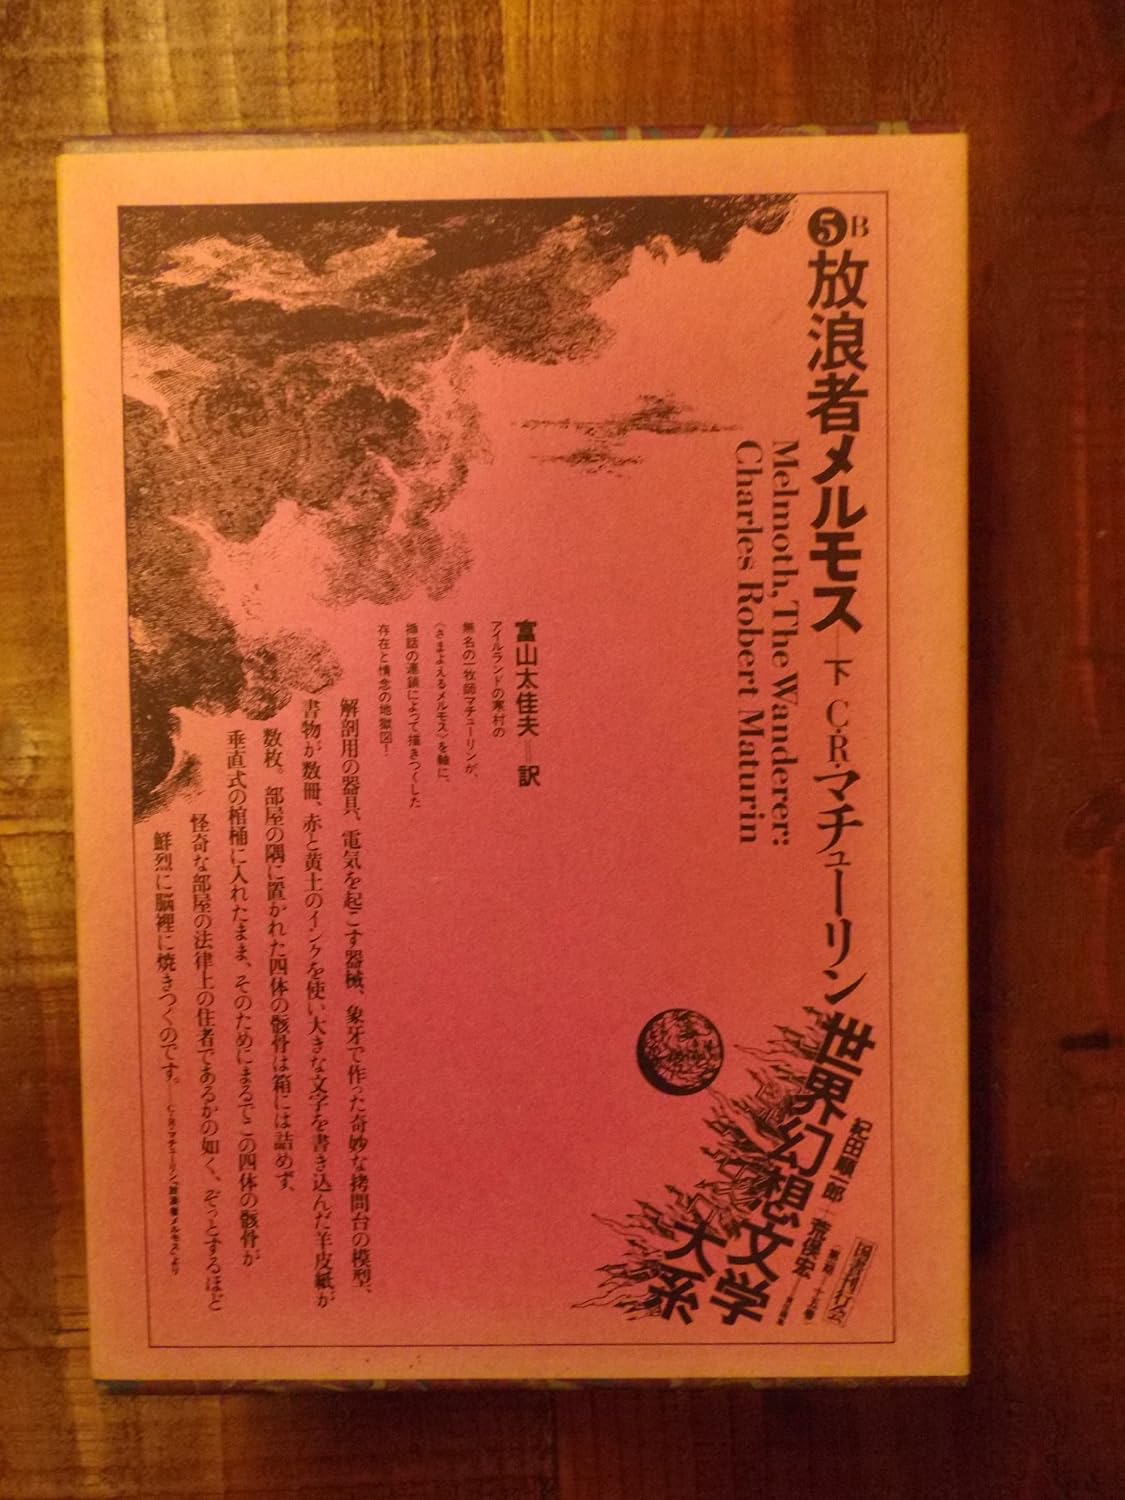 ❺B放浪者メルモス―下 C・R・マチューリン
Melmoth, The Wanderer:
Charles Robert Maturin
世界幻想文学
大系
紀田順一郎
荒俣宏
国書刊行会
富山太佳夫＝訳
アイルランドの寒村の
無名の一牧師マチューリンが、
〈さまよえるメルモス〉を軸に、
挿話の連鎖によって描きつくした
存在と情念の地獄図！
解剖用の器具、電気を起こす器械、象牙で作った奇妙な拷問台の模型、
書物が数冊、赤と黄土のインクを使い大きな文字を書き込んだ羊皮紙が
数枚。部屋の隅に置かれた四体の骸骨は箱には詰めず、
垂直式の棺桶に入れたまま、そのためにまるでこの四体の骸骨が
怪奇な部屋の法律上の住者であるかの如く、ぞっとするほど
鮮烈に脳裡に焼きつくのです。――C・R・マチューリン「放浪者メルモス」より